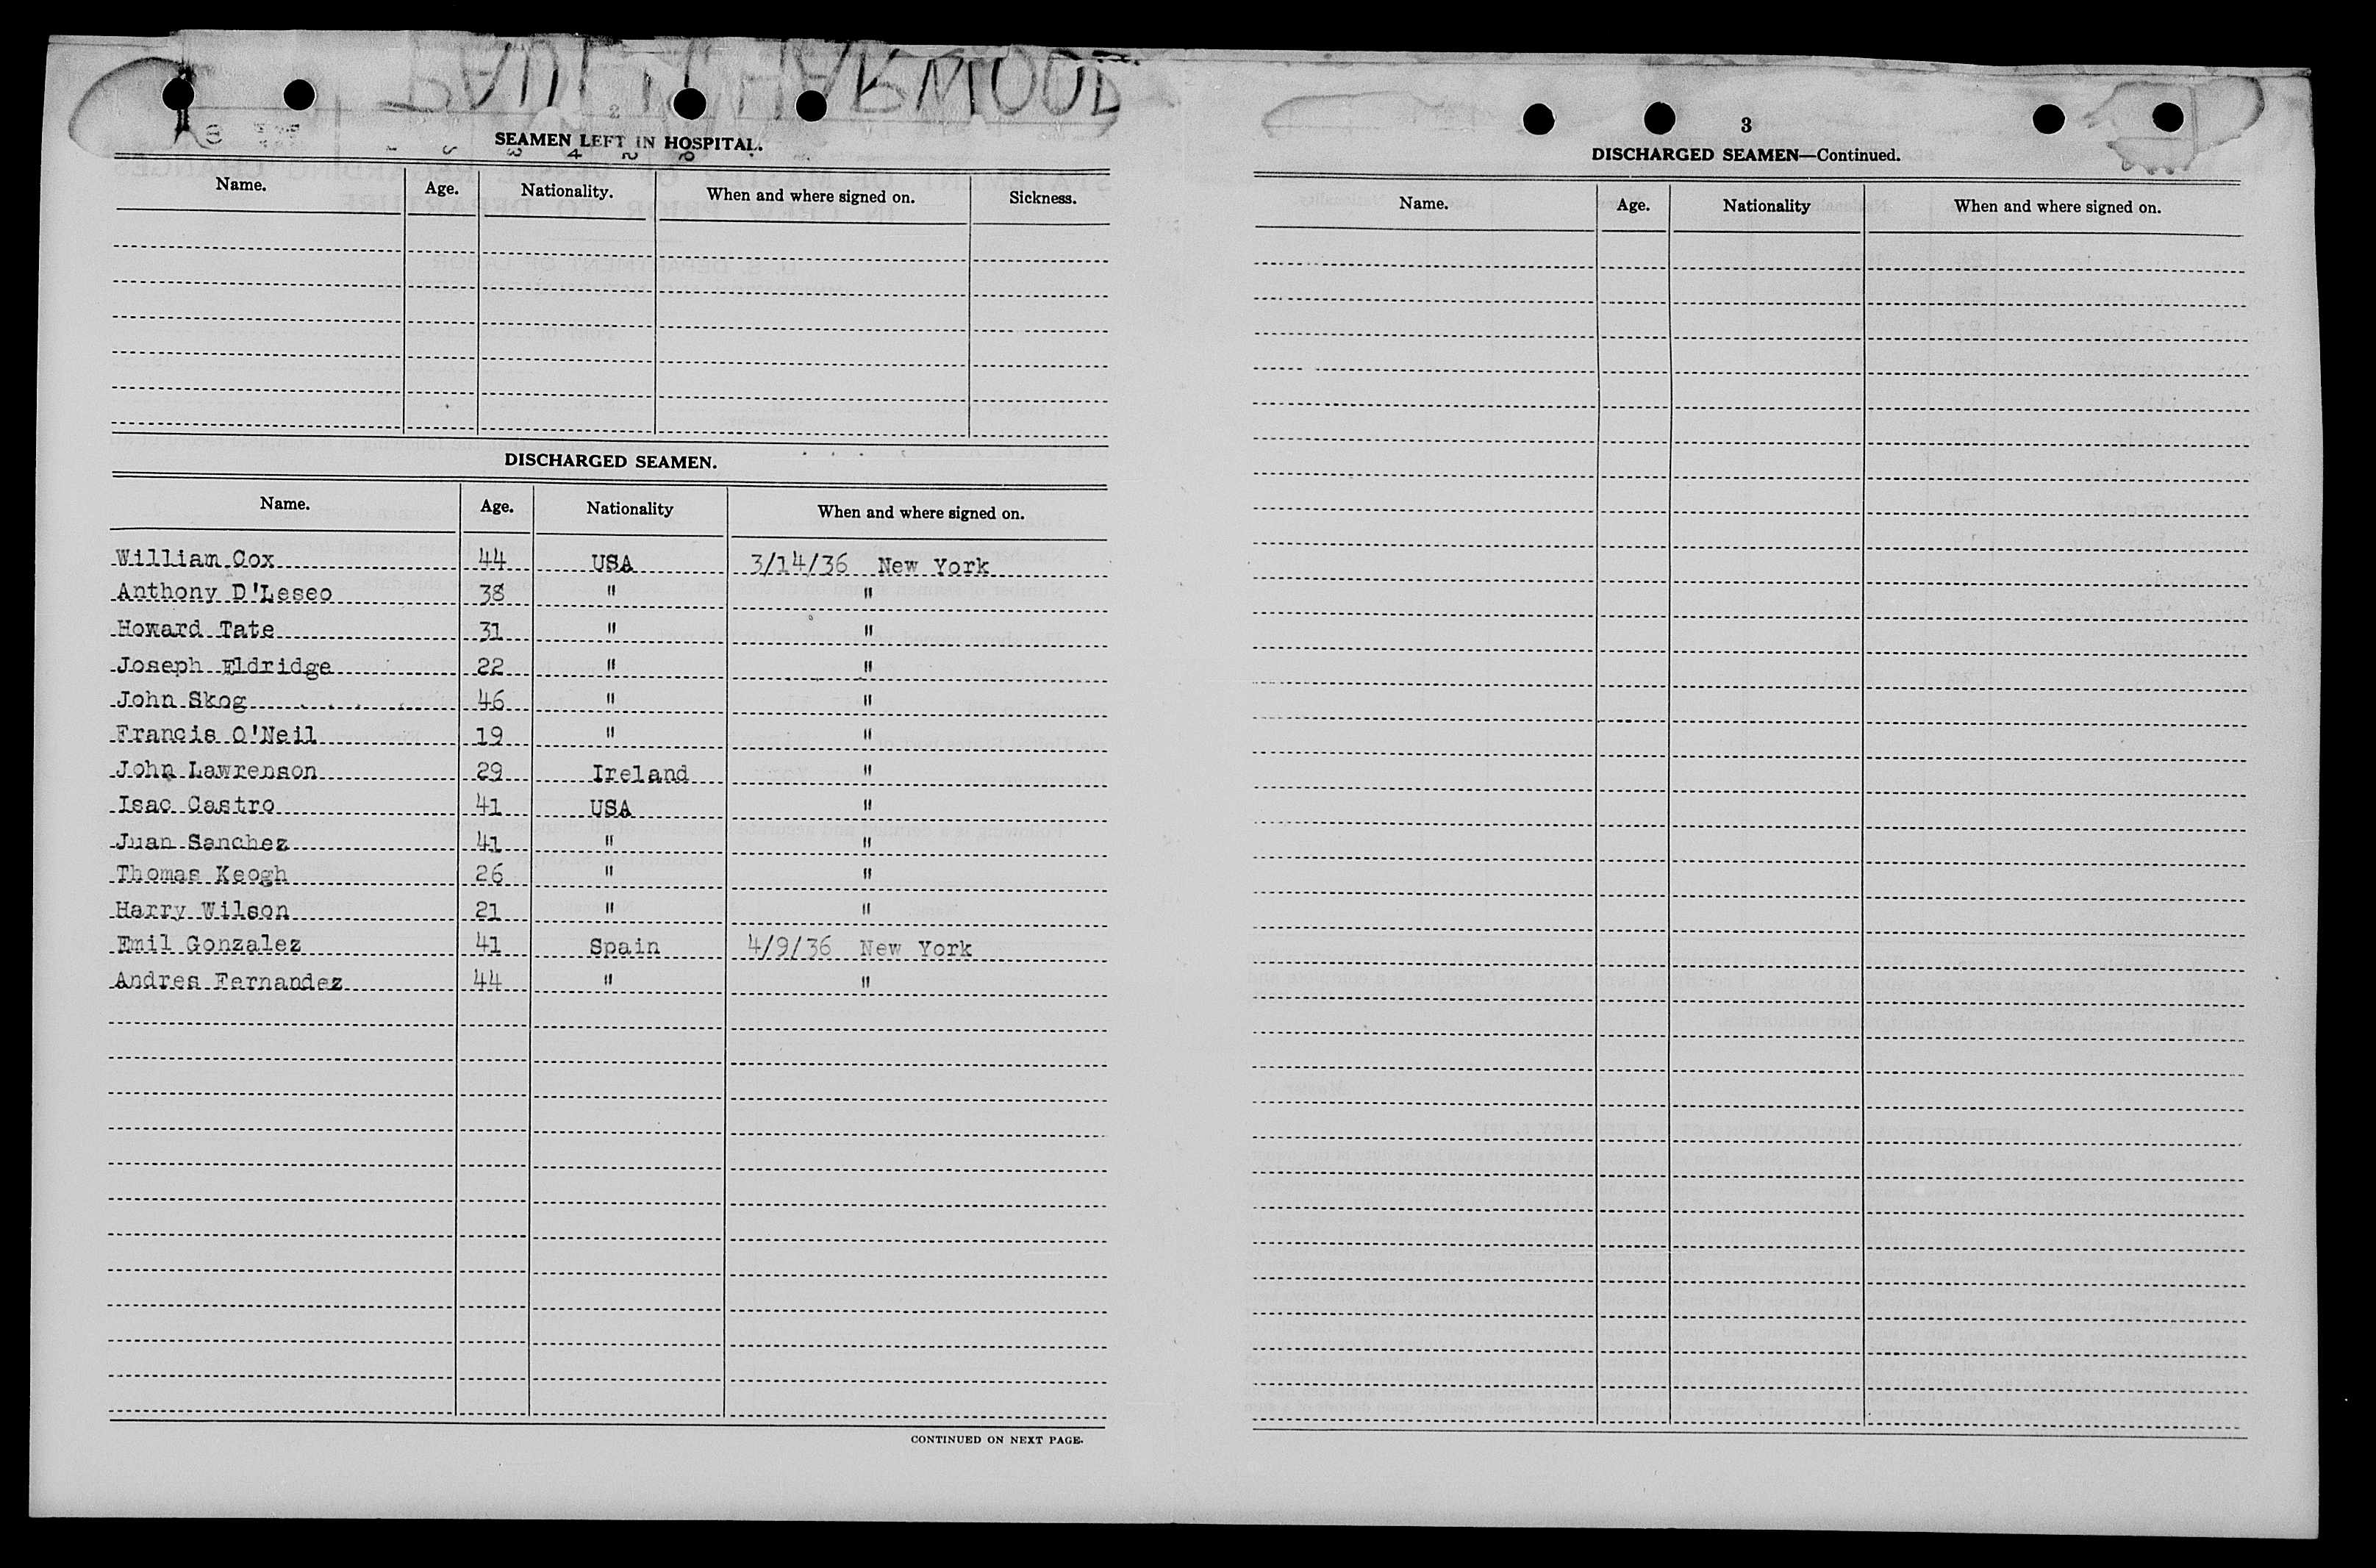 2
SEAMEN LEFT IN HOSPITAL.
Name. Age. Nationality. When and where signed on. Sickness.
DISCHARGED SEAMEN.
Name. Age. Nationality When and where signed on.
William Cox 44 USA 3/14/36 New York
Anthony D'Leseo 38 " "
Howard Tate 31 " "
Joseph Eldridge 22 " "
John Skog 46 " "
Francis O'Neil 19 " "
John Lawrenson 29 Ireland "
Isac Castro 41 USA "
Juan Sanchez 41 " "
Thomas Keogh 26 " "
Harry Wilson 21 " "
Emil Gonzalez 41 Spain 4/9/36 New York
Andres Fernandez 44 " "
CONTINUED ON NEXT PAGE.
3
DISCHARGED SEAMEN—Continued.
Name. Age. Nationality When and where signed on.